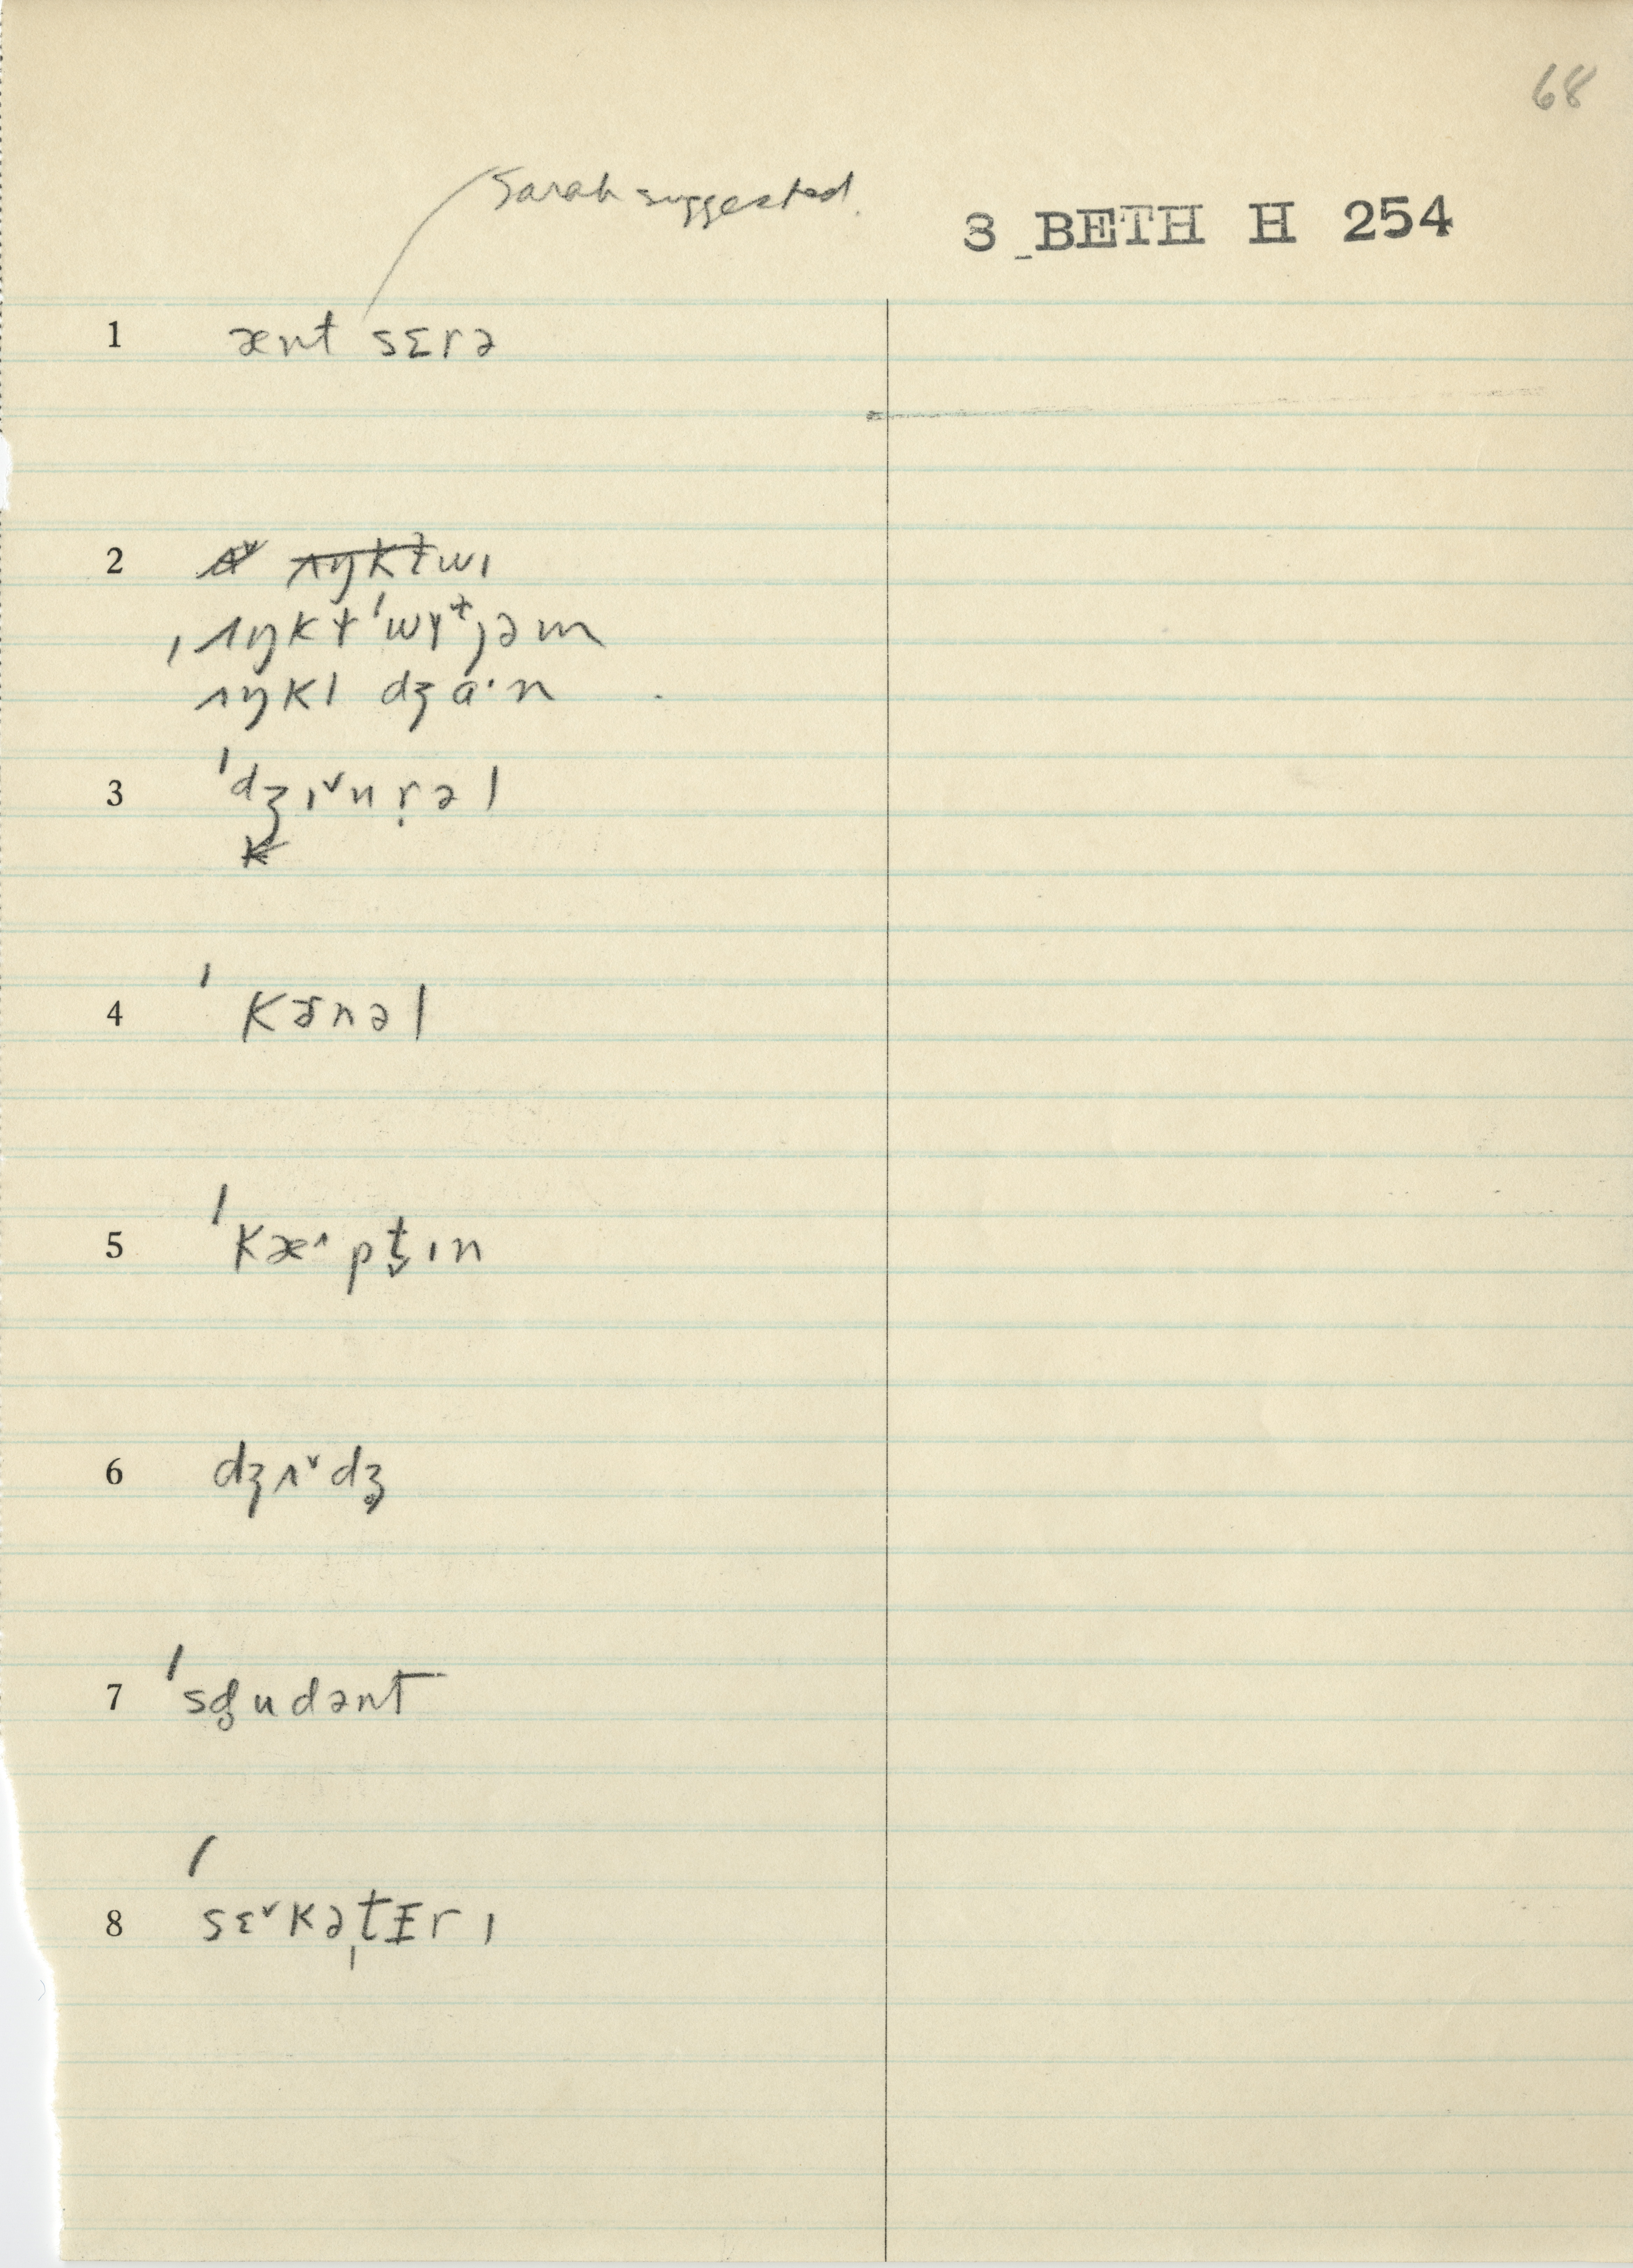 68
Sarah suggested.
3 BETH H 254
1 ænt sɛrə
2 ʌŋkɫwɪ
ˌʌŋkɫˈwɪɫjəm
ʌŋkl dʒɑ·n
3 ˈdʒɪ˅nr̩əl
4 ˈkɚnəl
5 ˈkæ˄pt̬ɪn
6 dʒʌ˅dʒ̊
7 ˈsd̥udənt
8 ˈsɛ˅kəˌtɛrɪ